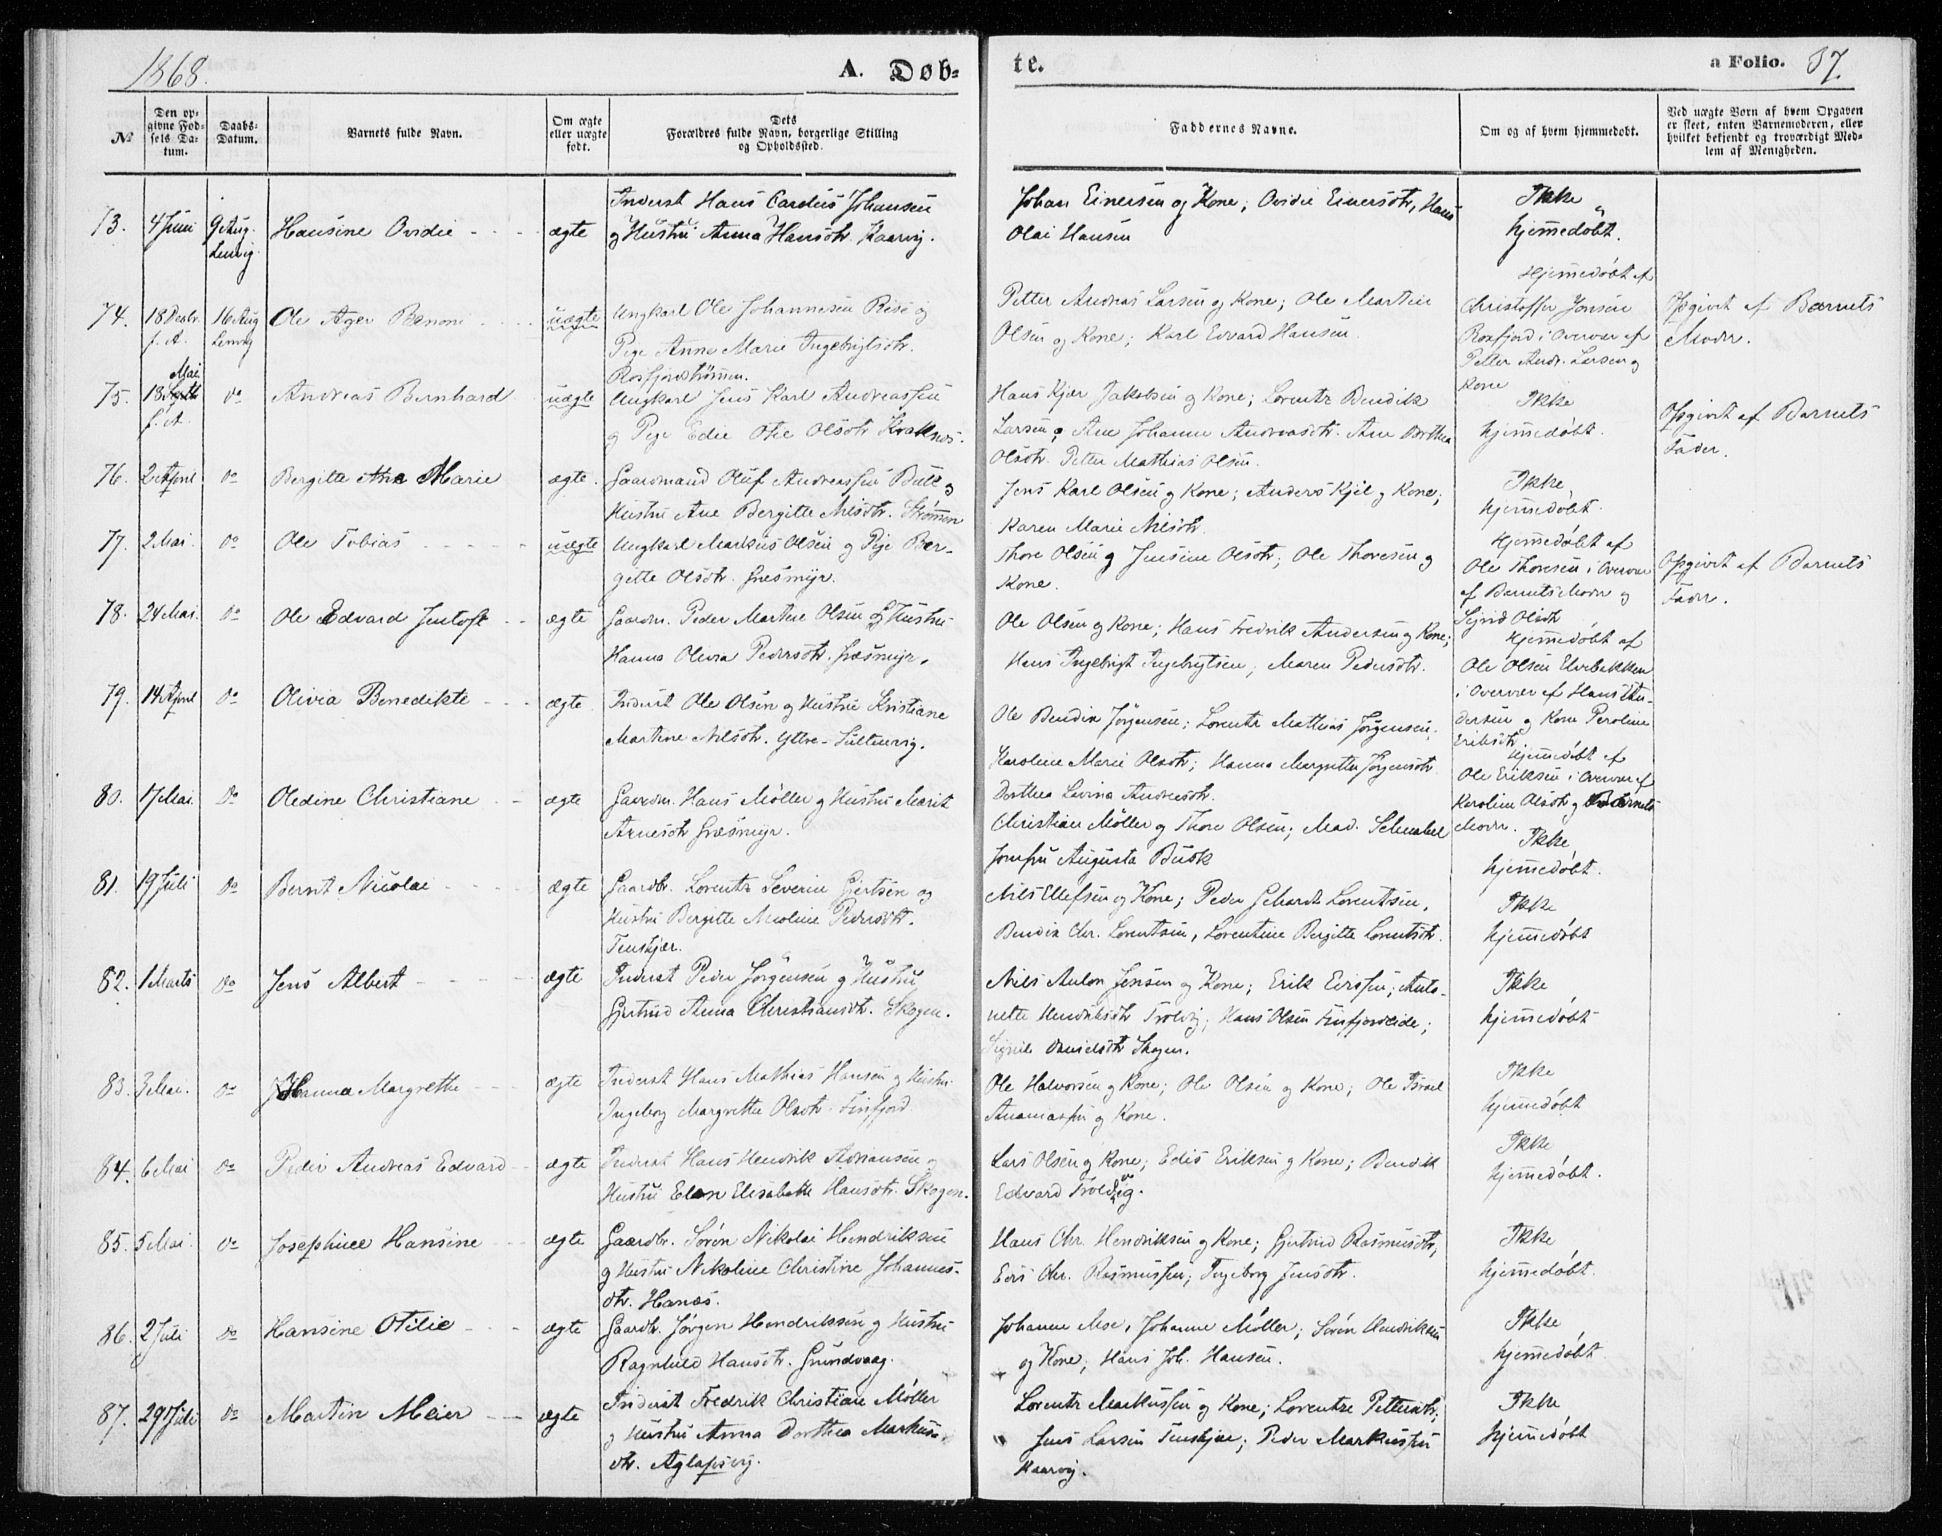 1868.
A. Døb-
te.
a Folio. 37.
No
Den op-
givne Fød-
sels Da-
tum.
Daabs-
Datum.
Barnets fulde Navn.
Om ægte
eller uægte
født.
Dets
Forældres fulde Navn, borgerlige Stilling
og Opholdssted.
Faddernes Navne.
Om og af hvem hjemmedøbt.
Ved uægte Børn af hvem Opgaven
er skeet, enten Barnemoderen, eller
hvilket bekjendt og troværdigt Med-
lem af Menigheden.
73. 4 Juni 9 Aug. Hansine Ovidie ægte
Lenvig
Inderst Hans Cardius Johansen
og Hustru Anna Hansdtr. Kaarvig.
Johan Einersen og Kone; Ovidie Einersdtr, Hans
Olai Hansen
Ikke
hjemmedøbt.
74. 18 Decbr. 16 Aug Ole Ager Benoni uægte
f. A. Lenvig
Ungkarl Ole Johannesen Bøsø og
Pige Anne Marie Ingebrigtsdtr.
Rosfjordstrømmen.
Petter Andreas Larsen og Kone; Ole Martin
Olsen og Kone; Karl Edvard Hansen.
Hjemmedøbt af
Christoffer Jonsen
Rosfjord i Overvær af
Petter Andr. Larsen og
Kone
Opgivet af Barnets
Moder.
75. Mai
18 f. A. do Andreas Bernhard uægte
Ungkarl Jens Karl Andreassen
og Pige Edie Otie Olsdtr Kvaknes.
Hans Kjær Jakobsen og Kone; Lorentz Bendik
Larsen og Ane Johanne Andreasdtr. Ane Dorthea
Olsdtr. Petter Mathias Olsen.
Ikke
hjemmedøbt.
Opgivet af Barnets
Fader.
76. 2 April do Bergitte Ana Marie ægte.
Gaardmand Oluf Andreassen Bull og
Hustru Ane Bergitte Nilsdtr. Strømmen
Jens Karl Olsen og Kone; Anders Kjil og Kone;
Karen Marie Nilsdtr.
Ikke
hjemmedøbt.
77. 2 Mai. do Ole Tobias uægte
Ungkarl Markus Olsen og Pige Ber-
gitte Olsdtr. Græsmyr.
Thore Olsen og Jensine Olsdtr; Ole Thoresen og
Kone.
Hjemmedøbt af
Ole Thoresen i Overvær
af Barnets Moder og
Sigrid Olsdtr
Opgivet af Barnets
Fader.
78. 24 Mai. do Ole Edvard Jentoft ægte
Gaardm. Peder Martin Olsen og Hustru
Hanna Olivia Pedersdtr. Græsmyr.
Ole Olsen og Kone; Hans Fredrik Andersen og Kone;
Hans Ingebrigt Ingebrigtsen; Maren Pedersdtr.
Hjemmedøbt af
Ole Olsen Elvebakken
i Overvær af Hans An-
dersen og Kone Peroline
Eriksdtr
79. 14 April do Olivia Benedikte ægte
Inderst Ole Olsen og Hustru Kristiane
Martine Nilsdtr. Yttre-Sultenvig.
Ole Bendix Jørgensen; Lorentz Mathias Jørgensen;
Karoline Marie Olsdtr; Hanna Margrethe Jørgensdtr
Dorthea Lavina Andreasdtr.
Hjemmedøbt af
Ole Eriksen i Overvær af
Karoline Olsdtr og Barnets
Moder.
80. 17 Mai. do Oledine Christiane ægte
Gaardm. Hans Møller og Hustru Marit
Arnesdtr Græsmyr.
Christian Møller og Thore Olsen; Mad. Schnabel
Jomfru Augusta Busk
Ikke
hjemmedøbt.
81. 19 Juli do Bernt Nicolai ægte
Gaardbr. Lorentz Severin Gjertsen og
Hustru Bergitte Nicoline Pedersdtr.
Tenskjær.
Nils Ellefsen og Kone; Peder Gehardt Lorentsen,
Bendix Chr. Lorentsen, Lorentine Bergitte Lorentsdtr.
Ikke
hjemmedøbt
82. 1 Marts do Jens Albert ægte
Inderst Peder Jørgensen og Hustru
Gjertrud Anna Christiansdtr. Skogen.
Nils Anton Jensen og Kone; Erik Eirssen; Anto-
nette Hendriksdtr Trolvig; Hans Olsen Finfjordeide;
Sigrid Danielsdtr Skogen.
Ikke
hjemmedøbt
83. 3 Mai. do Hanna Margrethe ægte
Inderst Hans Mathias Hansen og Hustru
Ingeborg Margrethe Olsdtr. Finfjord.
Ole Halvorsen og Kone; Ole Olsen og Kone; Ole Israel
Ananiassen og Kone.
Ikke
hjemmedøbt
84. 6 Mai do Peder Andreas Edvard ægte
Inderst Hans Hendrik Adriansen og
Hustru Elen Elisabeth Hansdtr. Skogen.
Lars Olsen og Kone; Edis Eriksen og Kone; Bendik
Edvard Troldvig.
Ikke
hjemmedøbt.
85. 5 Mai. do Josephine Hansine ægte
Gaardbr. Sørén Nikolai Hendriksen
og Hustru Nikoline Christine Johannes-
dtr. Hanæs.
Hans Chr. Hendriksen og Kone; Gjertrud Rasmusdtr,
Edis Chr. Rasmussen; Ingeborg Jensdtr.
Ikke
hjemmedøbt.
86. 2 Juli do Hansine Otilie ægte
Gaardbr. Jørgen Hendriksen og Hustru
Ragnhild Hansdtr. Grundvaag.
Johanne Moe, Johanne Møller; Sørén Hendriksen
og Kone; Hans Joh. Hansen.
Ikke
hjemmedøbt.
87. 29 Juli do Martin Meier ægte
Inderst Fredrik Christian Møller
og Hustru Anna Dorthea Markus-
dtr. Aglapsvig.
Lorentz Markussen og Kone; Lorentze Pettersdtr;
Jens Larsen Tenskjær; Peder Markussen
Kaarvig.
Ikke
hjemmedøbt